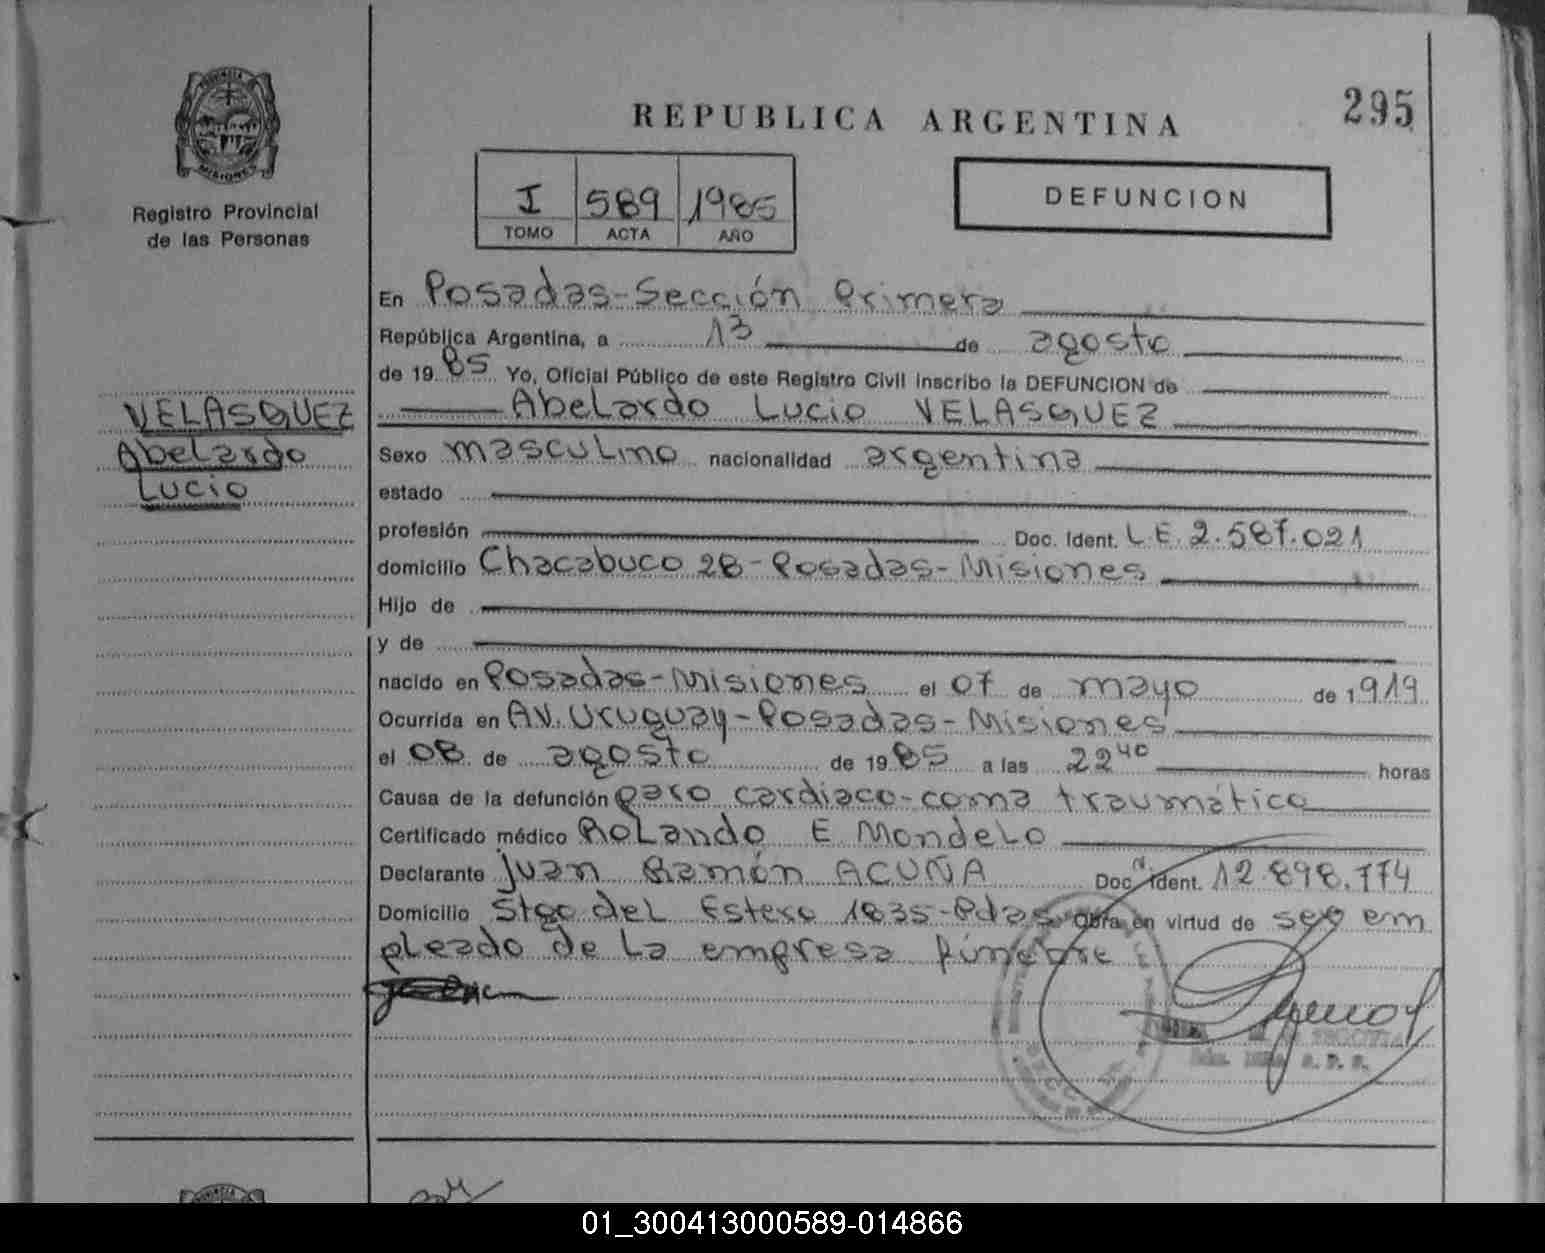 295
REPUBLICA ARGENTINA
PROVINCIA
MISIONES
Registro Provincial
de las Personas
I 589 1985
TOMO ACTA AÑO
DEFUNCION
En Posadas-Sección Primera
República Argentina, a 13 de agosto
de 1985 Yo, Oficial Público de este Registro Civil inscribo la DEFUNCION de
Abelardo Lucio VELASQUEZ
VELASQUEZ
Abelardo
Lucio
Sexo masculino nacionalidad argentina
estado
profesión Doc. Ident. L.E. 2.587.021
domicilio Chacabuco 28-Posadas-Misiones
Hijo de
y de
nacido en Posadas-Misiones el 07 de mayo de 1919
Ocurrida en AV. Uruguay-Posadas-Misiones
el 08 de agosto de 1985 a las 22 40 horas
Causa de la defunción paro cardiaco-coma traumático
Certificado médico Rolando E Mondelo
Declarante Juan Ramón ACUÑA Doc. Ident. 12.898.774
Domicilio Stgo del Estero 1835-Pdas Obra en virtud de ser em
pleado de la empresa fúnebre
01_300413000589-014866